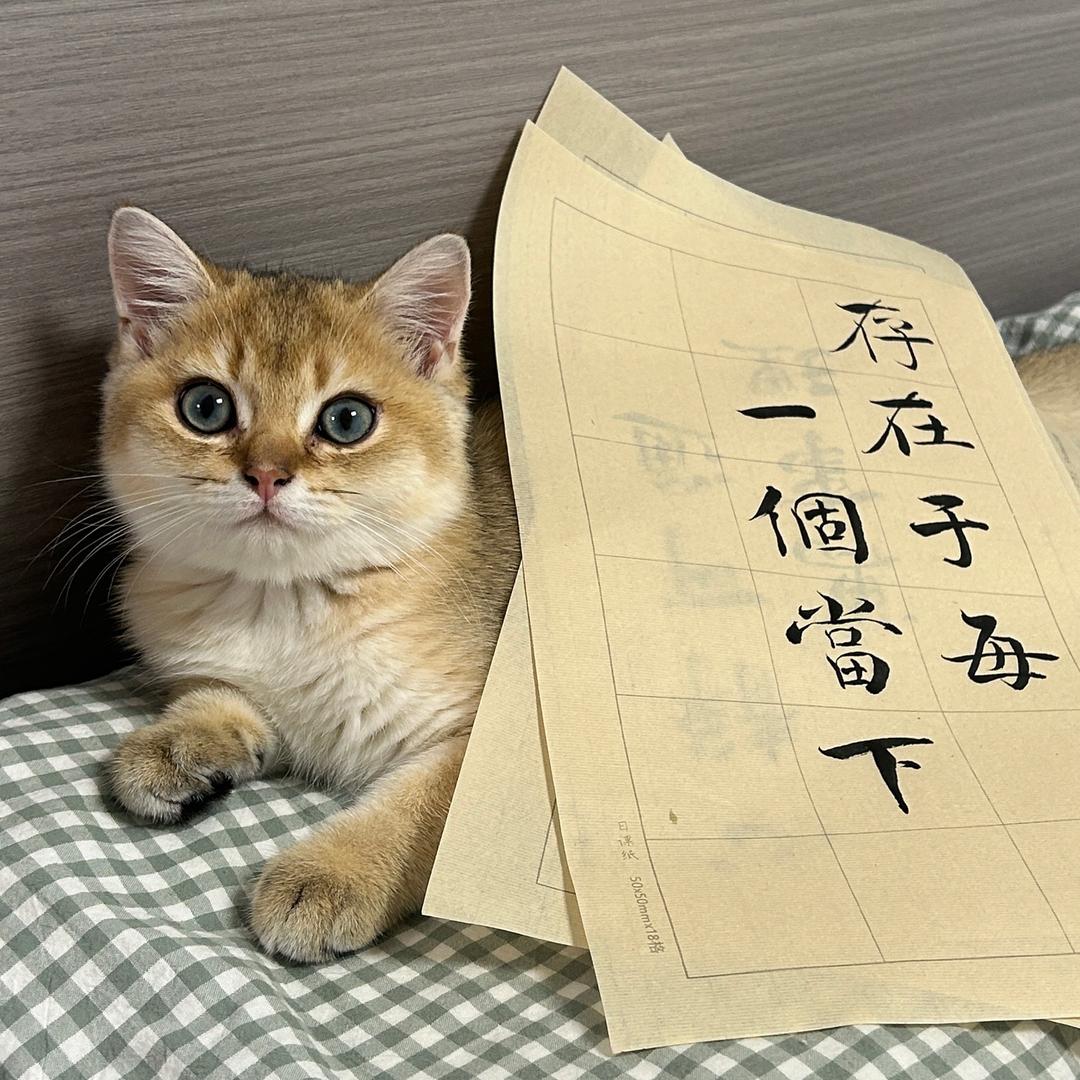 存在于每
一個當下
日课纸 50x50mmx18格